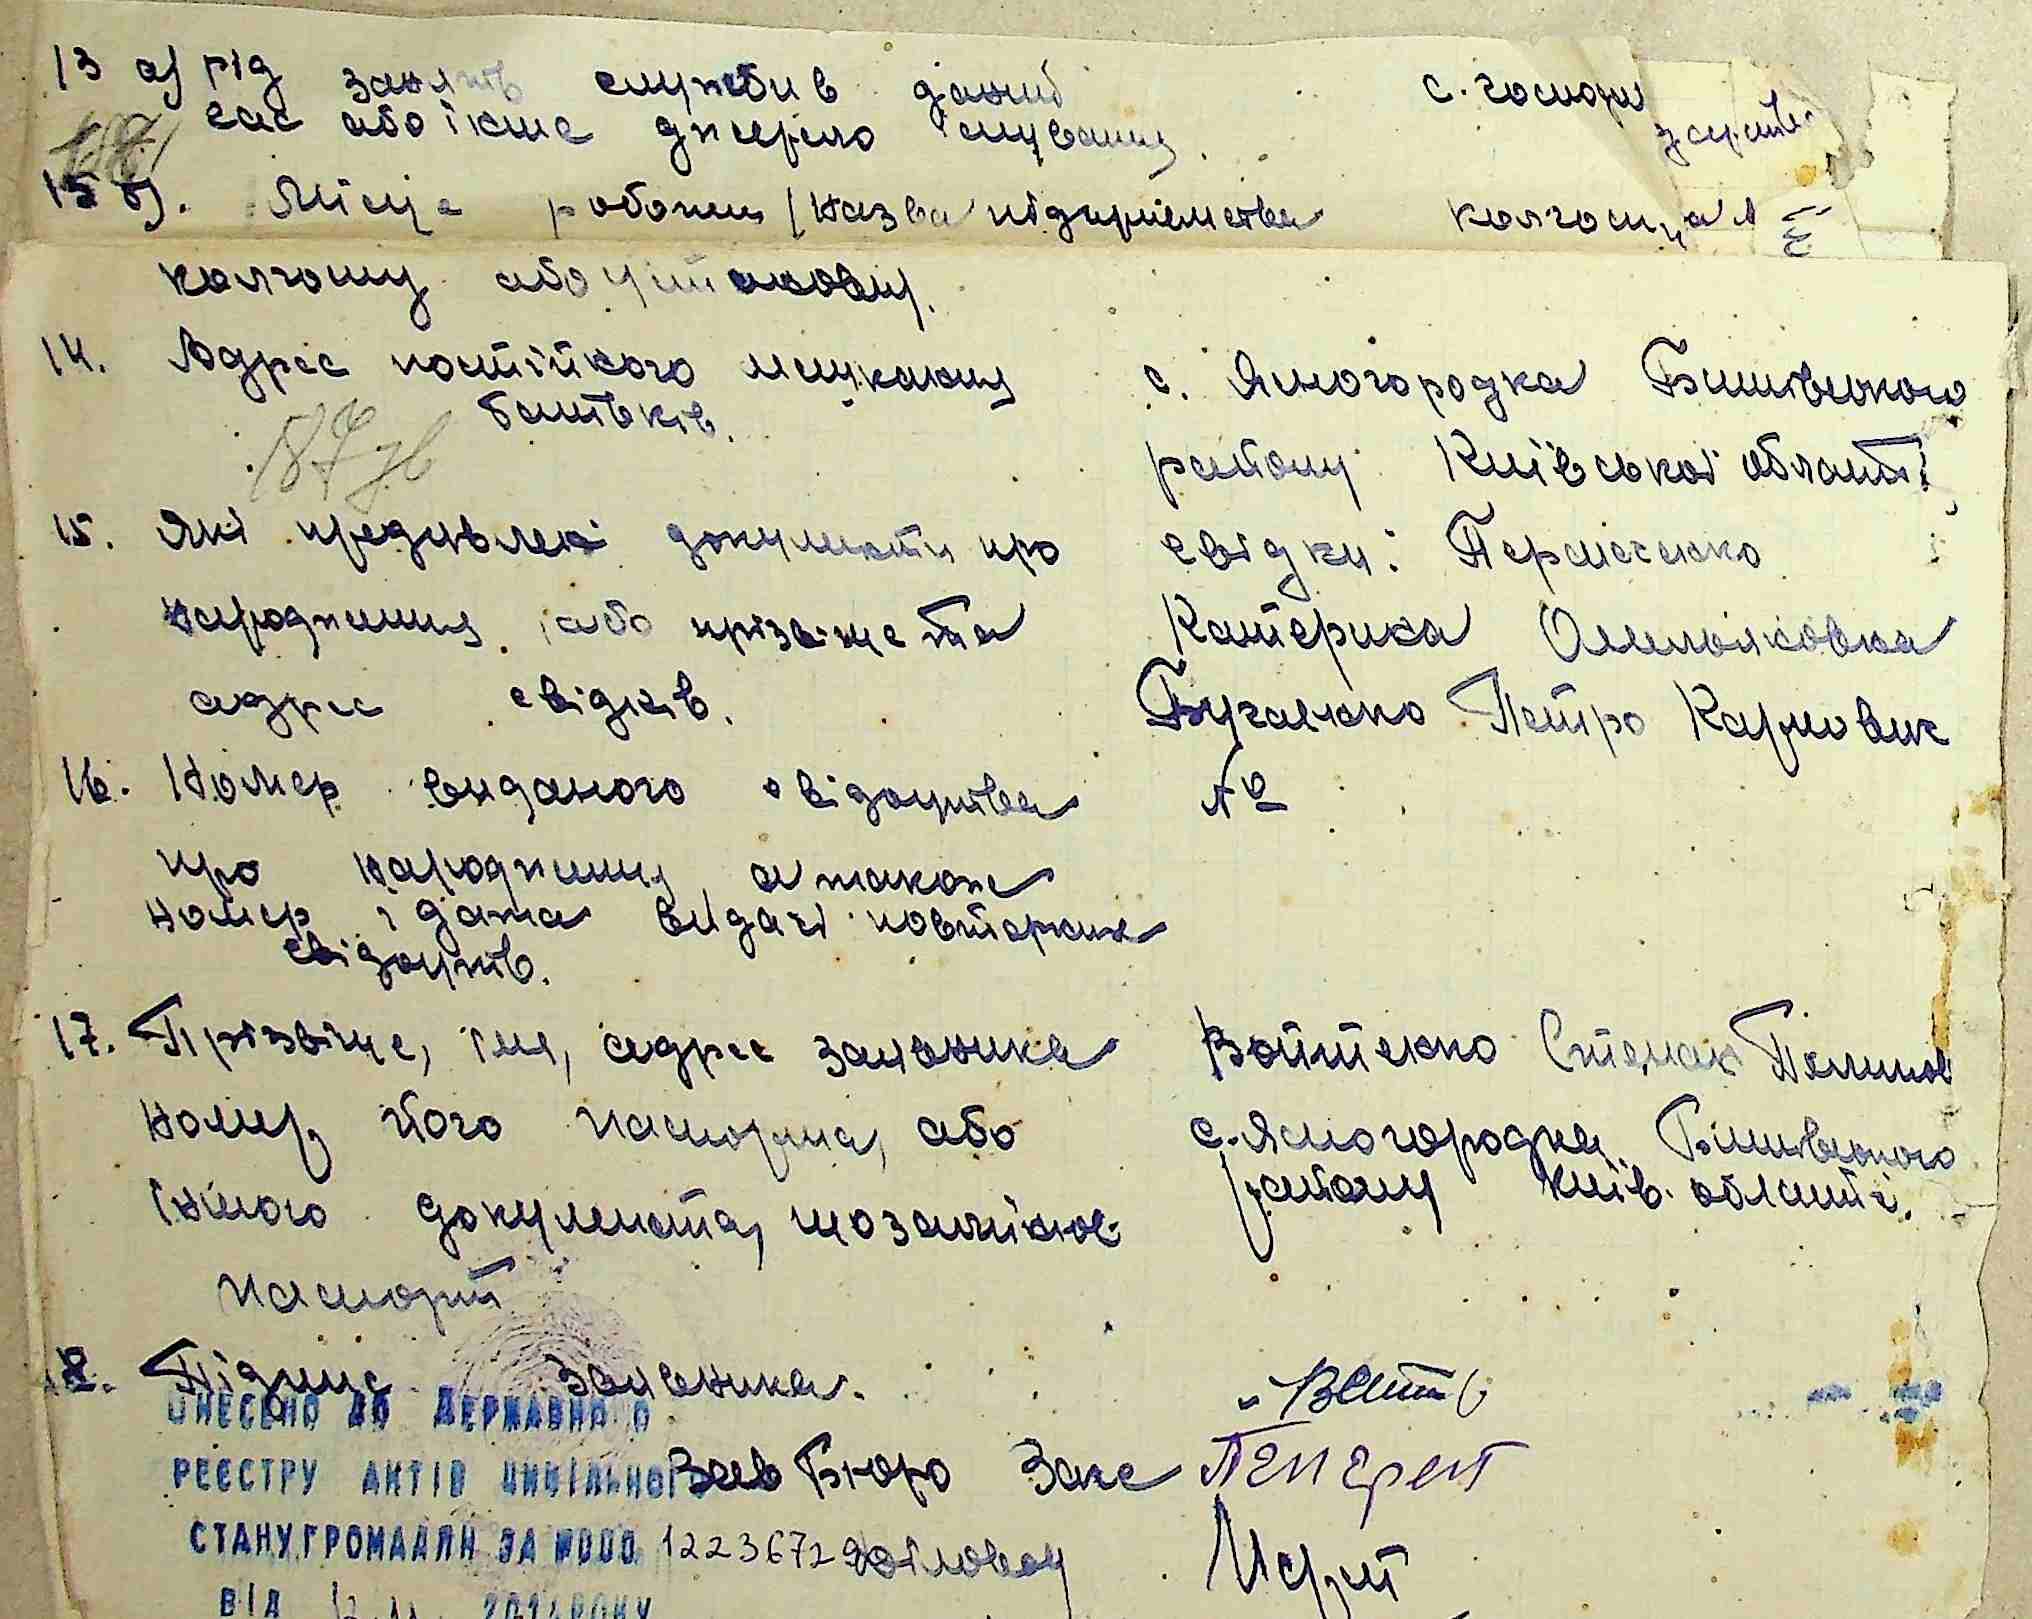 13 а) рід занять служби в даний с. господ
час або інше джерело існування
15 б). Місце роботи / назва підприємства колгоспу
колгоспу або установи.
14. Адрес постійного мешкання с. Ясногородка Бишівського
батьків. району Київської області
15. Які предявлені документи про свідки:
народження або прізвище та Катерина Омельяновна
адрес свідків. Бугаенко Петро Карпович
16. Номер виданого свідоцтва №
про народження, а також
номер і дата видачі повторних
свідоцтв.
17. Прізвище, імя, адрес заявника Войтенко Степан
номер його паспорта, або с. Ясногородка Бишівського
іншого документа, що замінює району Київ. області.
паспорт
18. Підпис заявника.
ВНЕСЕНО ДО ДЕРЖАВНОГО
РЕЄСТРУ АКТІВ ЦИВІЛЬНОГО Зав Бюро Загс
СТАНУ ГРОМАДЯН ЗА №000 1223672
ВІД